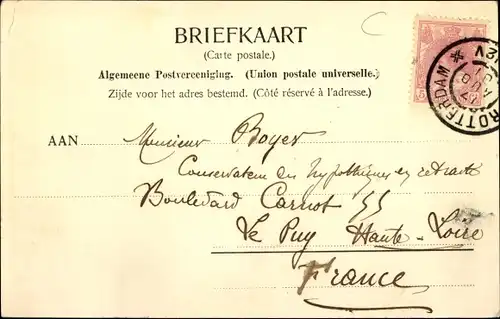 BRIEFKAART
(Carte postale.)
Algemeene Postvereeniging. (Union postale universelle.)
Zijde voor het adres bestemd. (Côté réservé à l'adresse.)
AAN Monsieur Boyer
Conservateur des hypothèques en retraite
Boulevard Carnot 55
Le Puy Haute-Loire
France
ROTTERDAM